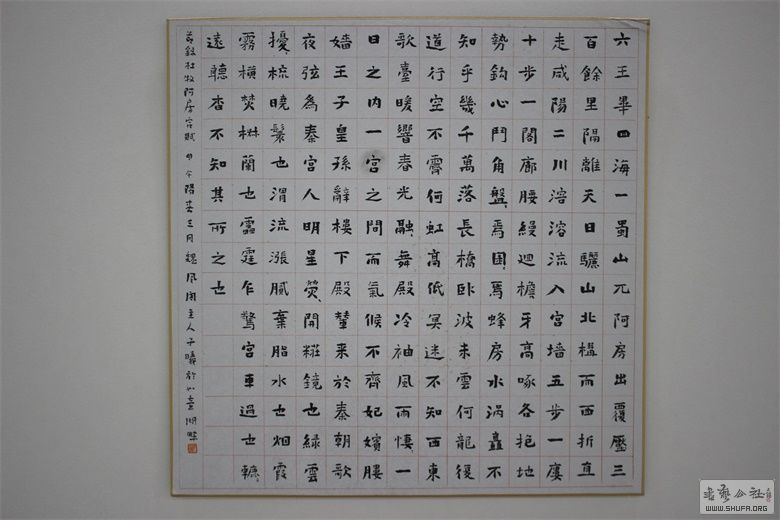 六王畢四海一蜀山兀阿房出覆壓三
百餘里隔離天日驪山北構而西折直
走咸陽二川溶溶流入宮墻五步一廔
十步一閣廊腰縵迴檐牙高啄各抱地
勢鈎心鬥角盤焉囷焉蜂房水渦矗不
知乎幾千萬落長橋臥波未雲何龍復
道行空不霽何虹高低冥迷不知西東
歌臺暖響春光融舞殿冷袖風雨悽一
日之內一宮之間而氣候不齊妃嬪媵
嬙王子皇孫辭樓下殿輦來於秦朝歌
夜弦為秦宮人明星熒開糚鏡也綠雲
擾梳曉鬟也渭流漲膩棄脂水也烟霞
霧橫焚椒蘭也靁霆乍驚宮車過也轆
遠聽杳不知其所之也
杜牧阿房宮賦 陽春三月魏風閣主人子曦於 湖畔
WWW.SHUFA.ORG